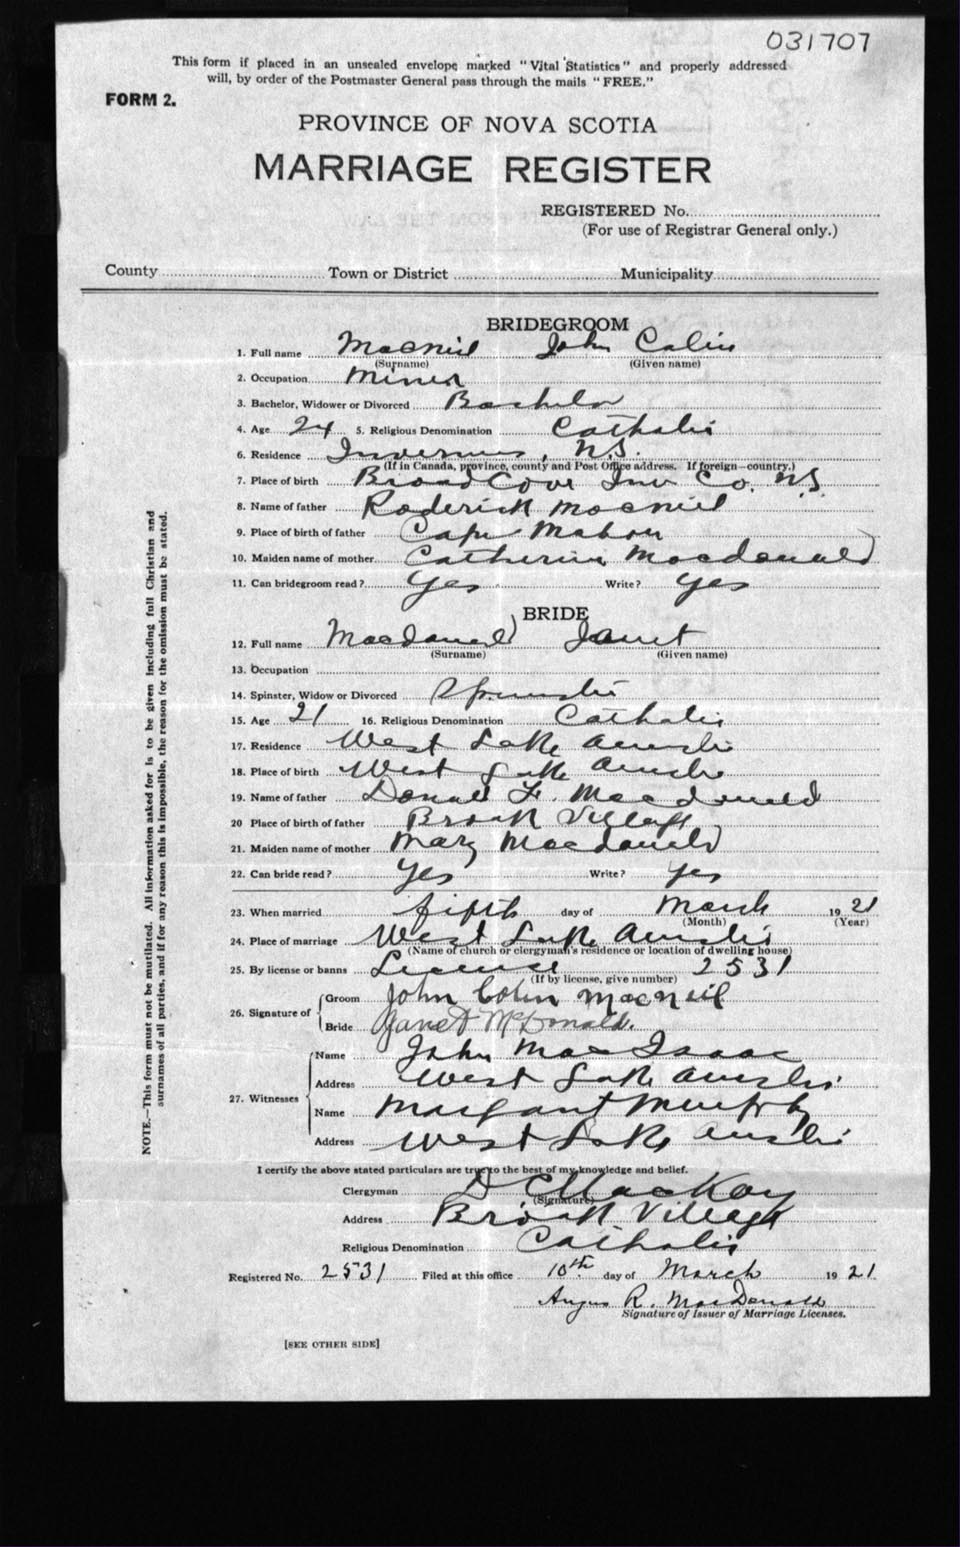 031707
This form if placed in an unsealed envelope marked "Vital Statistics" and properly addressed
will, by order of the Postmaster General pass through the mails "FREE."
FORM 2.
PROVINCE OF NOVA SCOTIA
MARRIAGE REGISTER
REGISTERED No.
(For use of Registrar General only.)
County Town or District Municipality
BRIDEGROOM
1. Full name Macneil John Colin
(Surname) (Given name)
2. Occupation Miner
3. Bachelor, Widower or Divorced Bachelor
4. Age 24 5. Religious Denomination Catholic
6. Residence Inverness, N.S.
(If in Canada, province, county and Post Office address. If foreign—country.)
7. Place of birth Broad Cove Inv Co. N.S.
8. Name of father Roderick Macneil
9. Place of birth of father Cape Mabou
10. Maiden name of mother Catherine Macdonald
11. Can bridegroom read? Yes Write? Yes
BRIDE
12. Full name Macdonald Janet
(Surname) (Given name)
13. Occupation
14. Spinster, Widow or Divorced Spinster
15. Age 21 16. Religious Denomination Catholic
17. Residence West Lake Ainslie
18. Place of birth West Lake Ainslie
19. Name of father Donald F. Macdonald
20 Place of birth of father Brook Village
21. Maiden name of mother Mary Macdonald
22. Can bride read? Yes Write? Yes
23. When married fifth day of March 1921
(Month) (Year)
24. Place of marriage West Lake Ainslie
(Name of church or clergyman's residence or location of dwelling house)
25. By license or banns License 2531
(If by license, give number)
26. Signature of
Groom John Colin Macneil
Bride Janet McDonald.
27. Witnesses
Name John MacIsaac
Address West Lake Ainslie
Name Margaret Murphy
Address West Lake Ainslie
I certify the above stated particulars are true to the best of my knowledge and belief.
Clergyman D C MacKay
(Signature)
Address Brook Village
Religious Denomination Catholic
Registered No. 2531 Filed at this office 10th day of March 1921.
Angus R. MacDonald
Signature of Issuer of Marriage Licenses.
[SEE OTHER SIDE]
NOTE.—This form must not be mutilated. All information asked for is to be given including full Christian and
surnames of all parties, and if for any reason this is impossible, the reason for the omission must be stated.